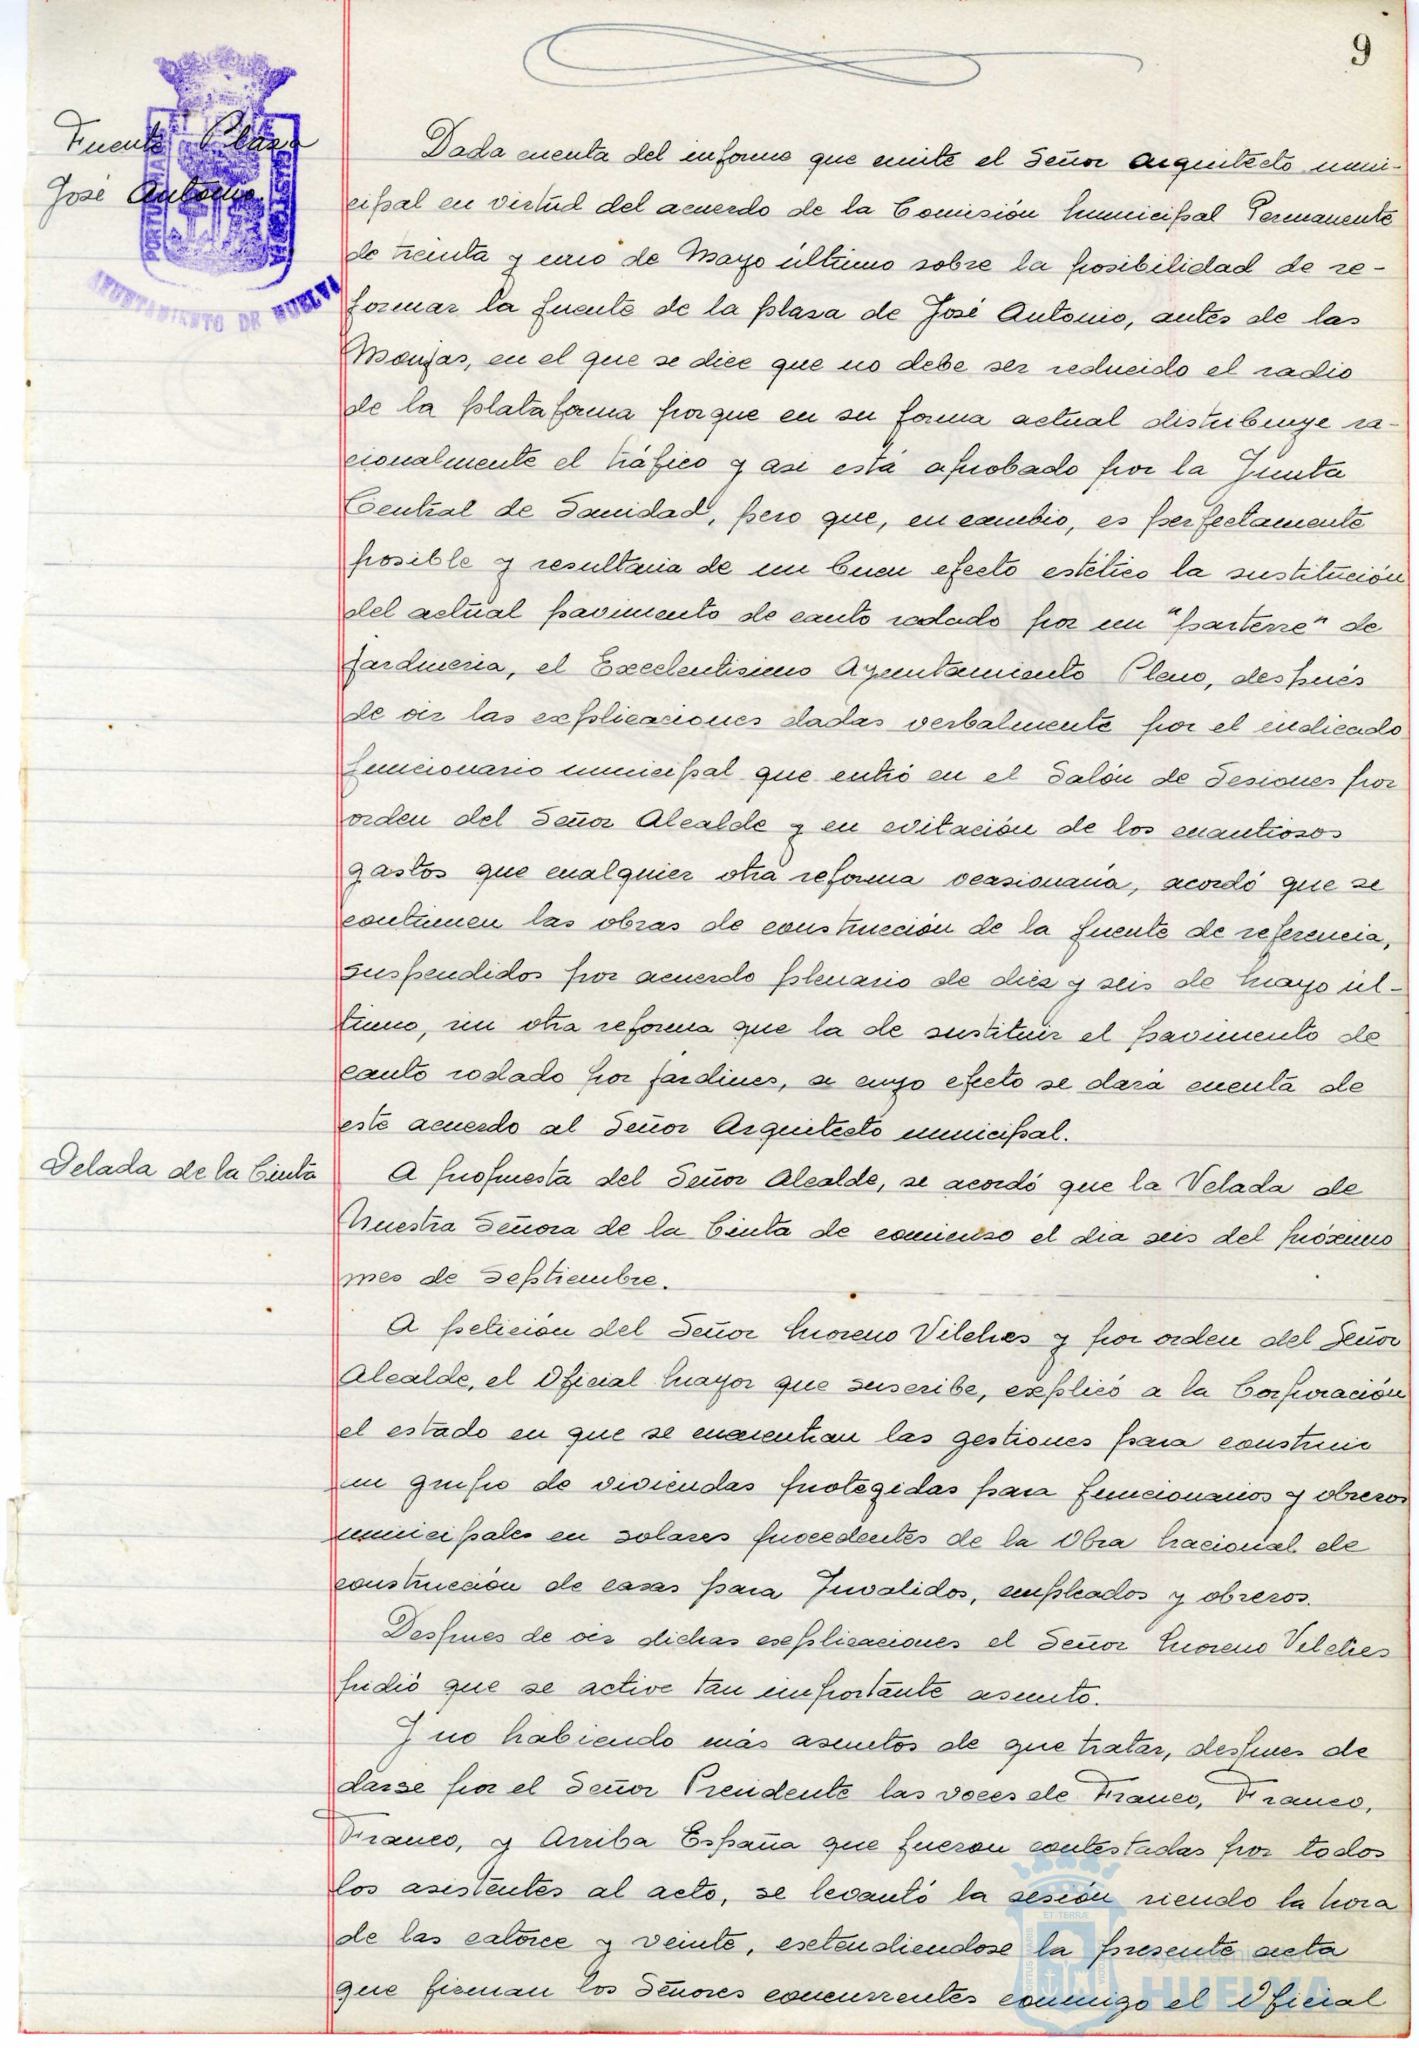 9
Fuente Plaza
José Antonio.
PORTUS MARIS ET TERRAE CUSTODIA
AYUNTAMIENTO DE HUELVA
Dada cuenta del informe que emite el Señor Arquitecto muni-
cipal en virtud del acuerdo de la Comisión Municipal Permanente
de treinta y uno de Mayo último sobre la posibilidad de re-
formar la fuente de la plaza de José Antonio, antes de las
Monjas, en el que se dice que no debe ser reducido el radio
de la plataforma porque en su forma actual distribuye ra-
cionalmente el tráfico y asi está aprobado por la Junta
Central de Sanidad, pero que, en cambio, es perfectamente
posible y resultaria de un buen efecto estético la sustitución
del actual pavimento de canto rodado por un "parterre" de
jardineria, el Excelentisimo Ayuntamiento Pleno, después
de oir las explicaciones dadas verbalmente por el indicado
funcionario municipal que entró en el Salón de Sesiones por
orden del Señor Alcalde y en evitación de los cuantiosos
gastos que cualquier otra reforma ocasionaria, acordó que se
continuen las obras de construcción de la fuente de referencia,
suspendidos por acuerdo plenario de diez y seis de Mayo úl-
timo, sin otra reforma que la de sustituir el pavimento de
canto rodado por jardines, a cuyo efecto se dará cuenta de
este acuerdo al Señor Arquitecto municipal.
Velada de la Cinta
A propuesta del Señor Alcalde, se acordó que la Velada de
Nuestra Señora de la Cinta de comienzo el dia seis del próximo
mes de Septiembre.
A petición del Señor Moreno Vilches y por orden del Señor
Alcalde, el Oficial Mayor que suscribe, explicó a la Corporación
el estado en que se encuentran las gestiones para construir
un grupo de viviendas protegidas para funcionarios y obreros
municipales en solares procedentes de la Obra Nacional de
construcción de casas para Invalidos, empleados y obreros.
Despues de oir dichas explicaciones el Señor Moreno Vilches
pidió que se active tan importante asunto.
Y no habiendo más asuntos de que tratar, despues de
darse por el Señor Presidente las voces de Franco, Franco,
Franco, y Arriba España que fueron contestadas por todos
los asistentes al acto, se levantó la sesión siendo la hora
de las catorce y veinte, extendiendose la presente acta
que firman los Señores concurrentes conmigo el Oficial
Ayuntamiento de
HUELVA